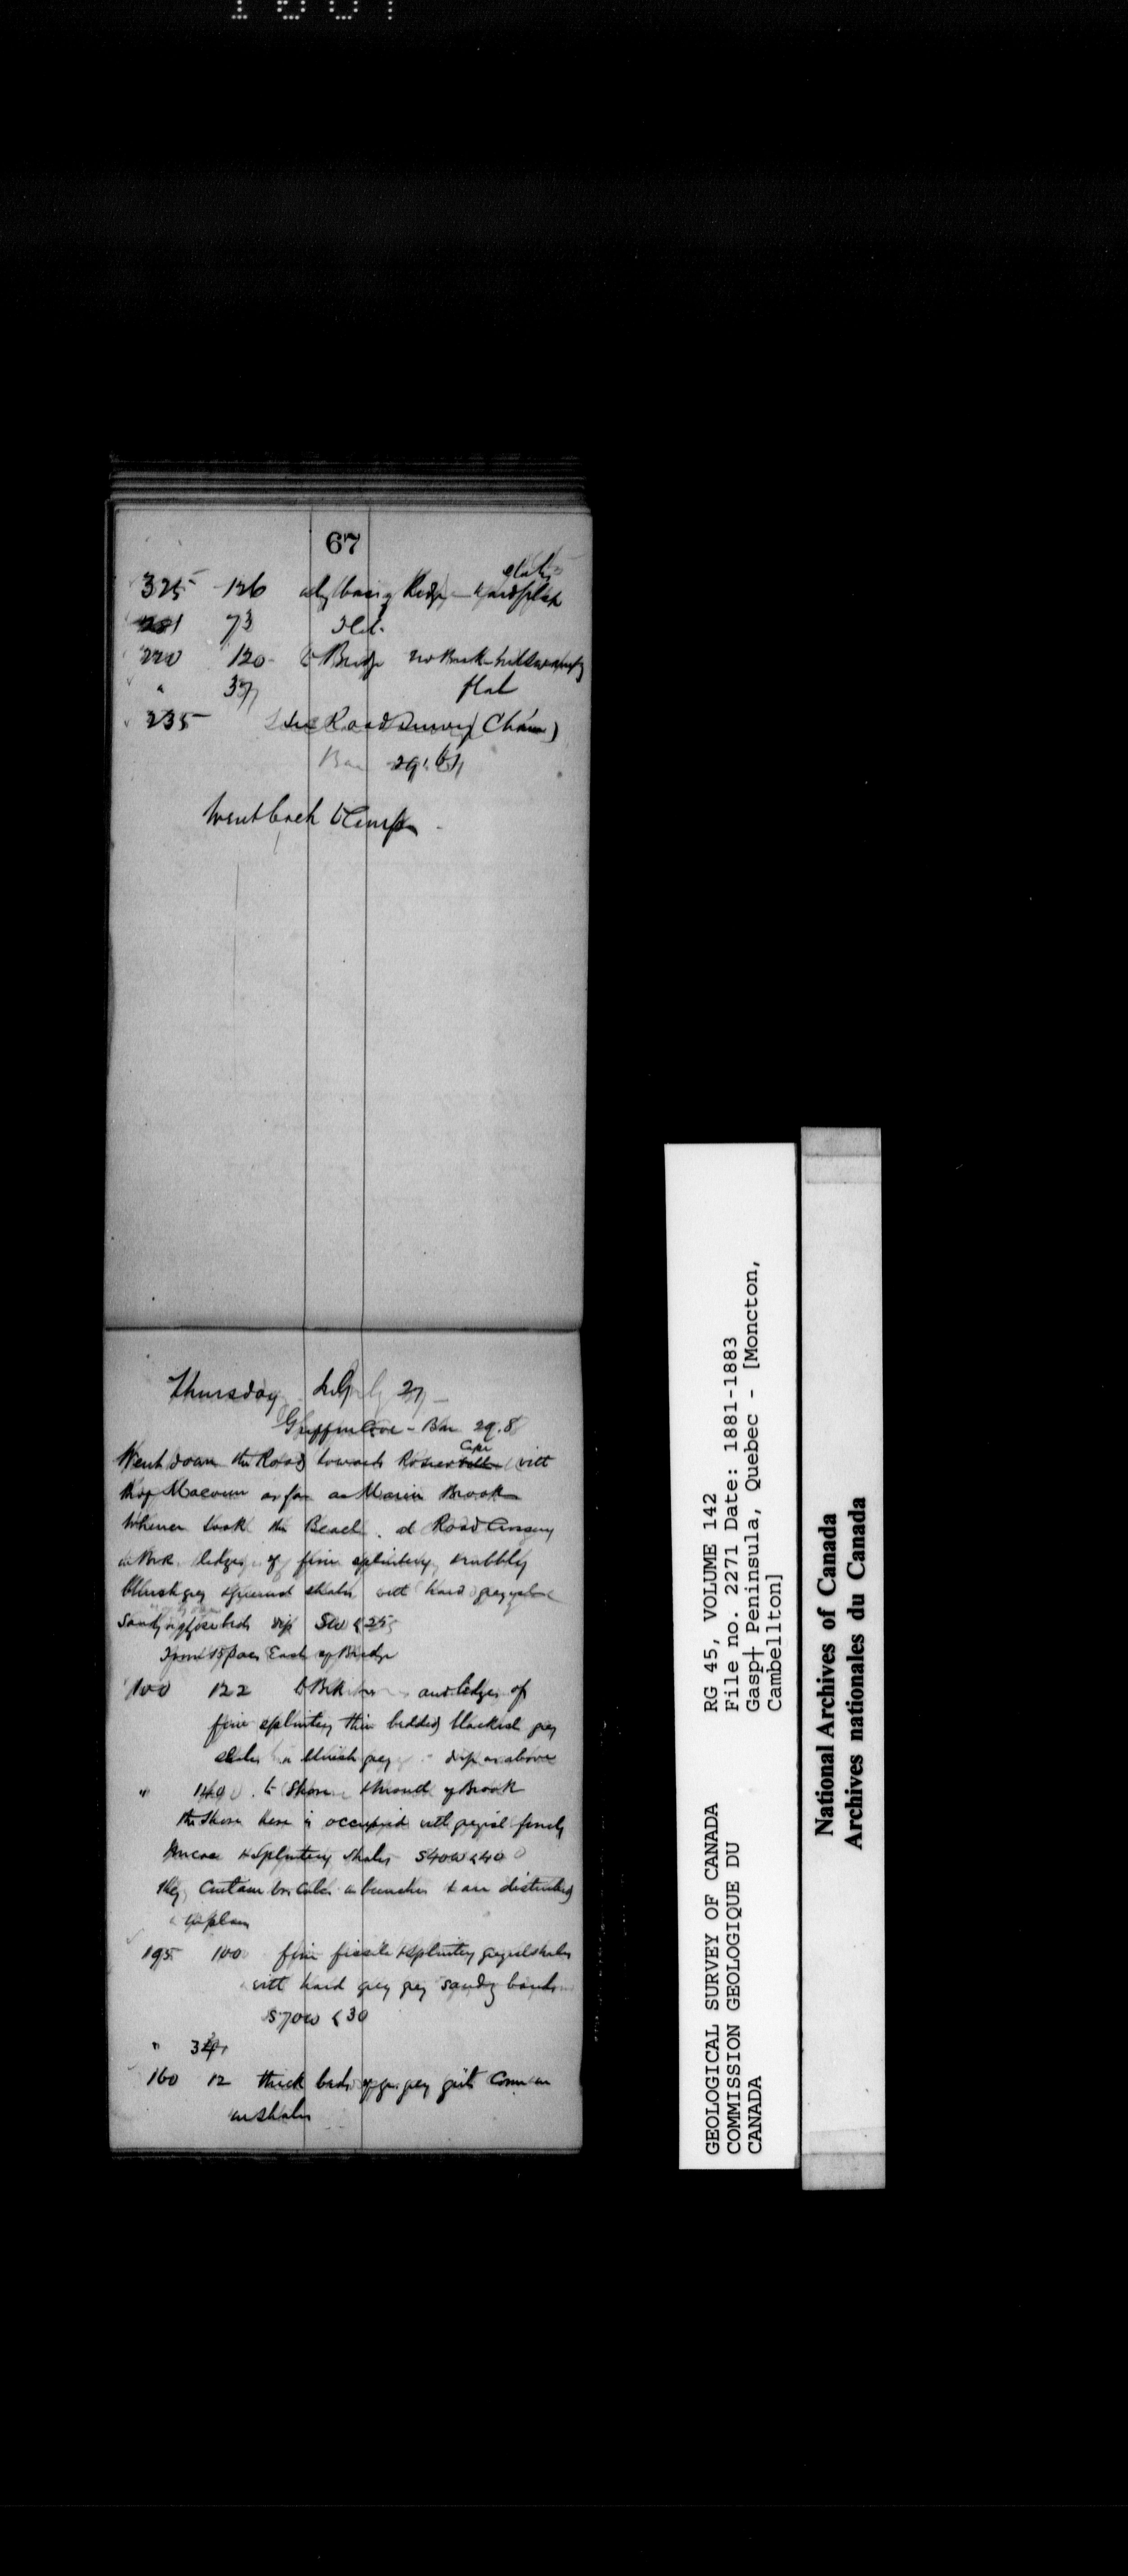 67
325 126 along base of Ridge
73
220 120 to Bridge
" 37 flat
235 See Road Survey (Chain)
Bar 29.61
Went back to Camp
Thursday July 27
Griffin Cove - Bar 29.8
Went down the Road towards Rosier Cape with
Prof Macoun as far as Marin Brook
Whence took the Beach. at Road Crossing
ledges of fine splintery rubbly
shales with hard
Sandy beds dip SW < 25
From 15 paces East of Bridge
100 122 to Brk and ledges of
fine splintery thin bedded blackish grey
shales bluish grey dip as above
" 140 to Shore & mouth of Brook
the Shore here is occupied with greyish finely
& splintery shales S40W < 40
They contain & are disturbed
in places
195 100 fine fissile & splintery greyish shales
with hard grey grey sandy bands
S70W < 30
" 34
160 12 thick beds of grey grits Come in
in shales
GEOLOGICAL SURVEY OF CANADA
COMMISSION GEOLOGIQUE DU
CANADA
RG 45, VOLUME 142
File no. 2271 Date: 1881-1883
Gasp† Peninsula, Quebec - [Moncton,
Cambellton]
National Archives of Canada
Archives nationales du Canada